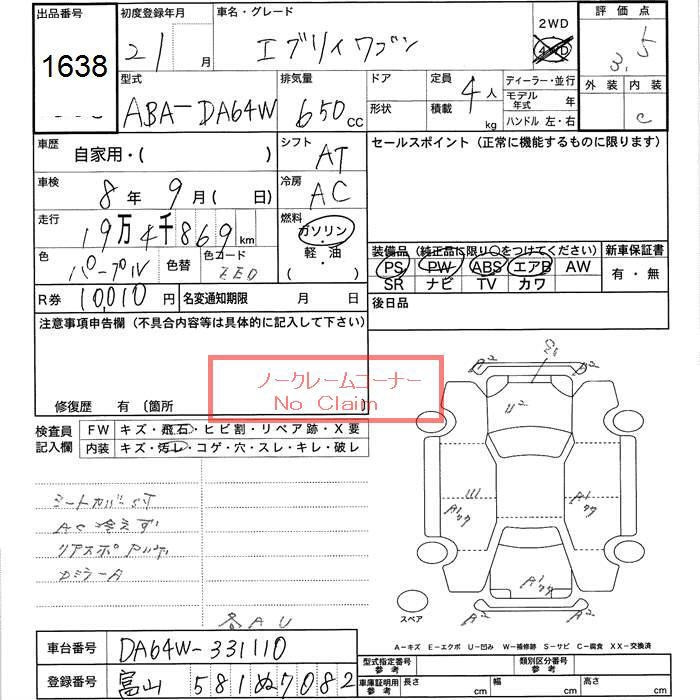 出品番号 初度登録年月 車名・グレード 2WD 評価点
1638 21 月 エブリイワゴン 4WD 3.5
型式 排気量 ドア 定員 ディーラー・並行 外装 内装
ABA-DA64W 650 cc 形状 積載 4人 kg モデル年式 年 ハンドル 左・右 C
車歴 自家用・( ) シフト AT セールスポイント (正常に機能するものに限ります)
車検 8年 9月 ( 日) 冷房 AC
走行 19万4千869 km 燃料 ガソリン・軽油 ( )
色 パープル 色替 色コード ZE0
装備品 (純正品に限り○をつけてください) 新車保証書
PS PW ABS エアB AW 有・無
SR ナビ TV カワ
R券 10,010円 名変通知期限 月 日 後日品
注意事項申告欄 (不具合内容等は具体的に記入して下さい)
ノークレームコーナー
No Claim
修復歴 有 〔箇所
検査員記入欄 FW キズ・飛石・ヒビ割・リペア跡・X要
内装 キズ・汚レ・コゲ・穴・スレ・キレ・破レ
シートカバーST
AC冷えず
リアスポ
Dミラ-A
各AU
A2 A2
U2
A1 A1
A1
A2 A2
スペア
A-キズ E-エクボ U-凹み W-補修跡 S-サビ C-腐食 XX-交換済
車台番号 DA64W-331110
型式指定番号 参考 類別区分番号 参考
登録番号 富山 581 ぬ 7082
車庫証明用 参考 長さ cm 幅 cm 高さ cm